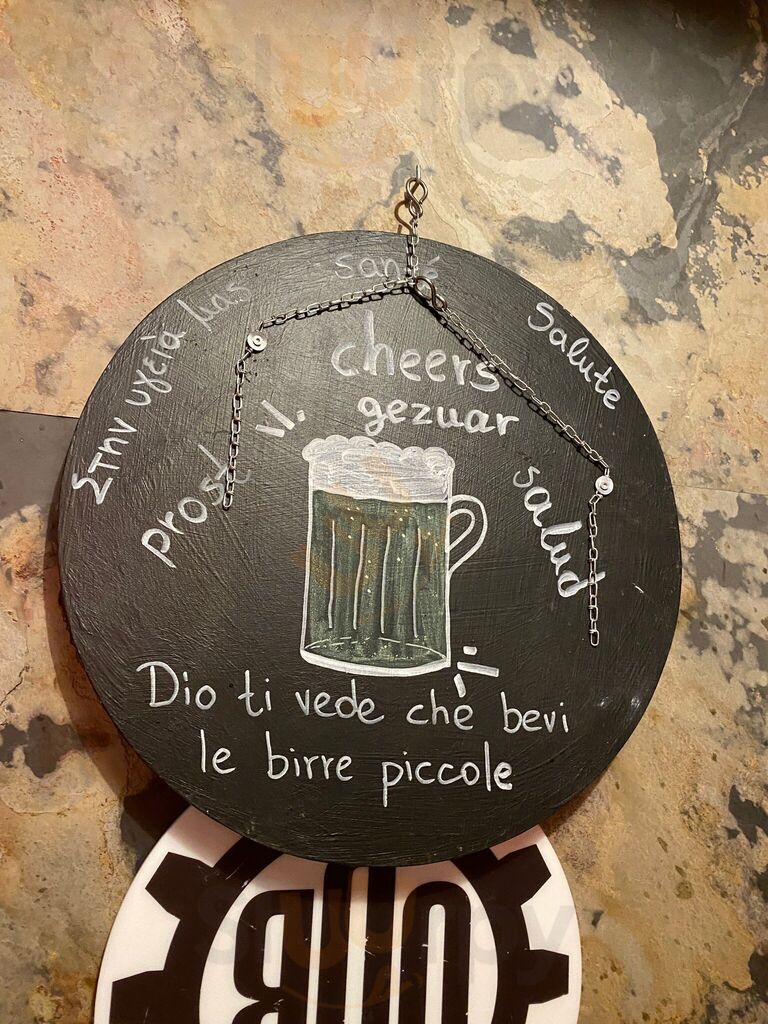 santé
Στην υγειά μας
cheers
Salute
gezuar
prost
salud
Dio ti vede che bevi
le birre piccole